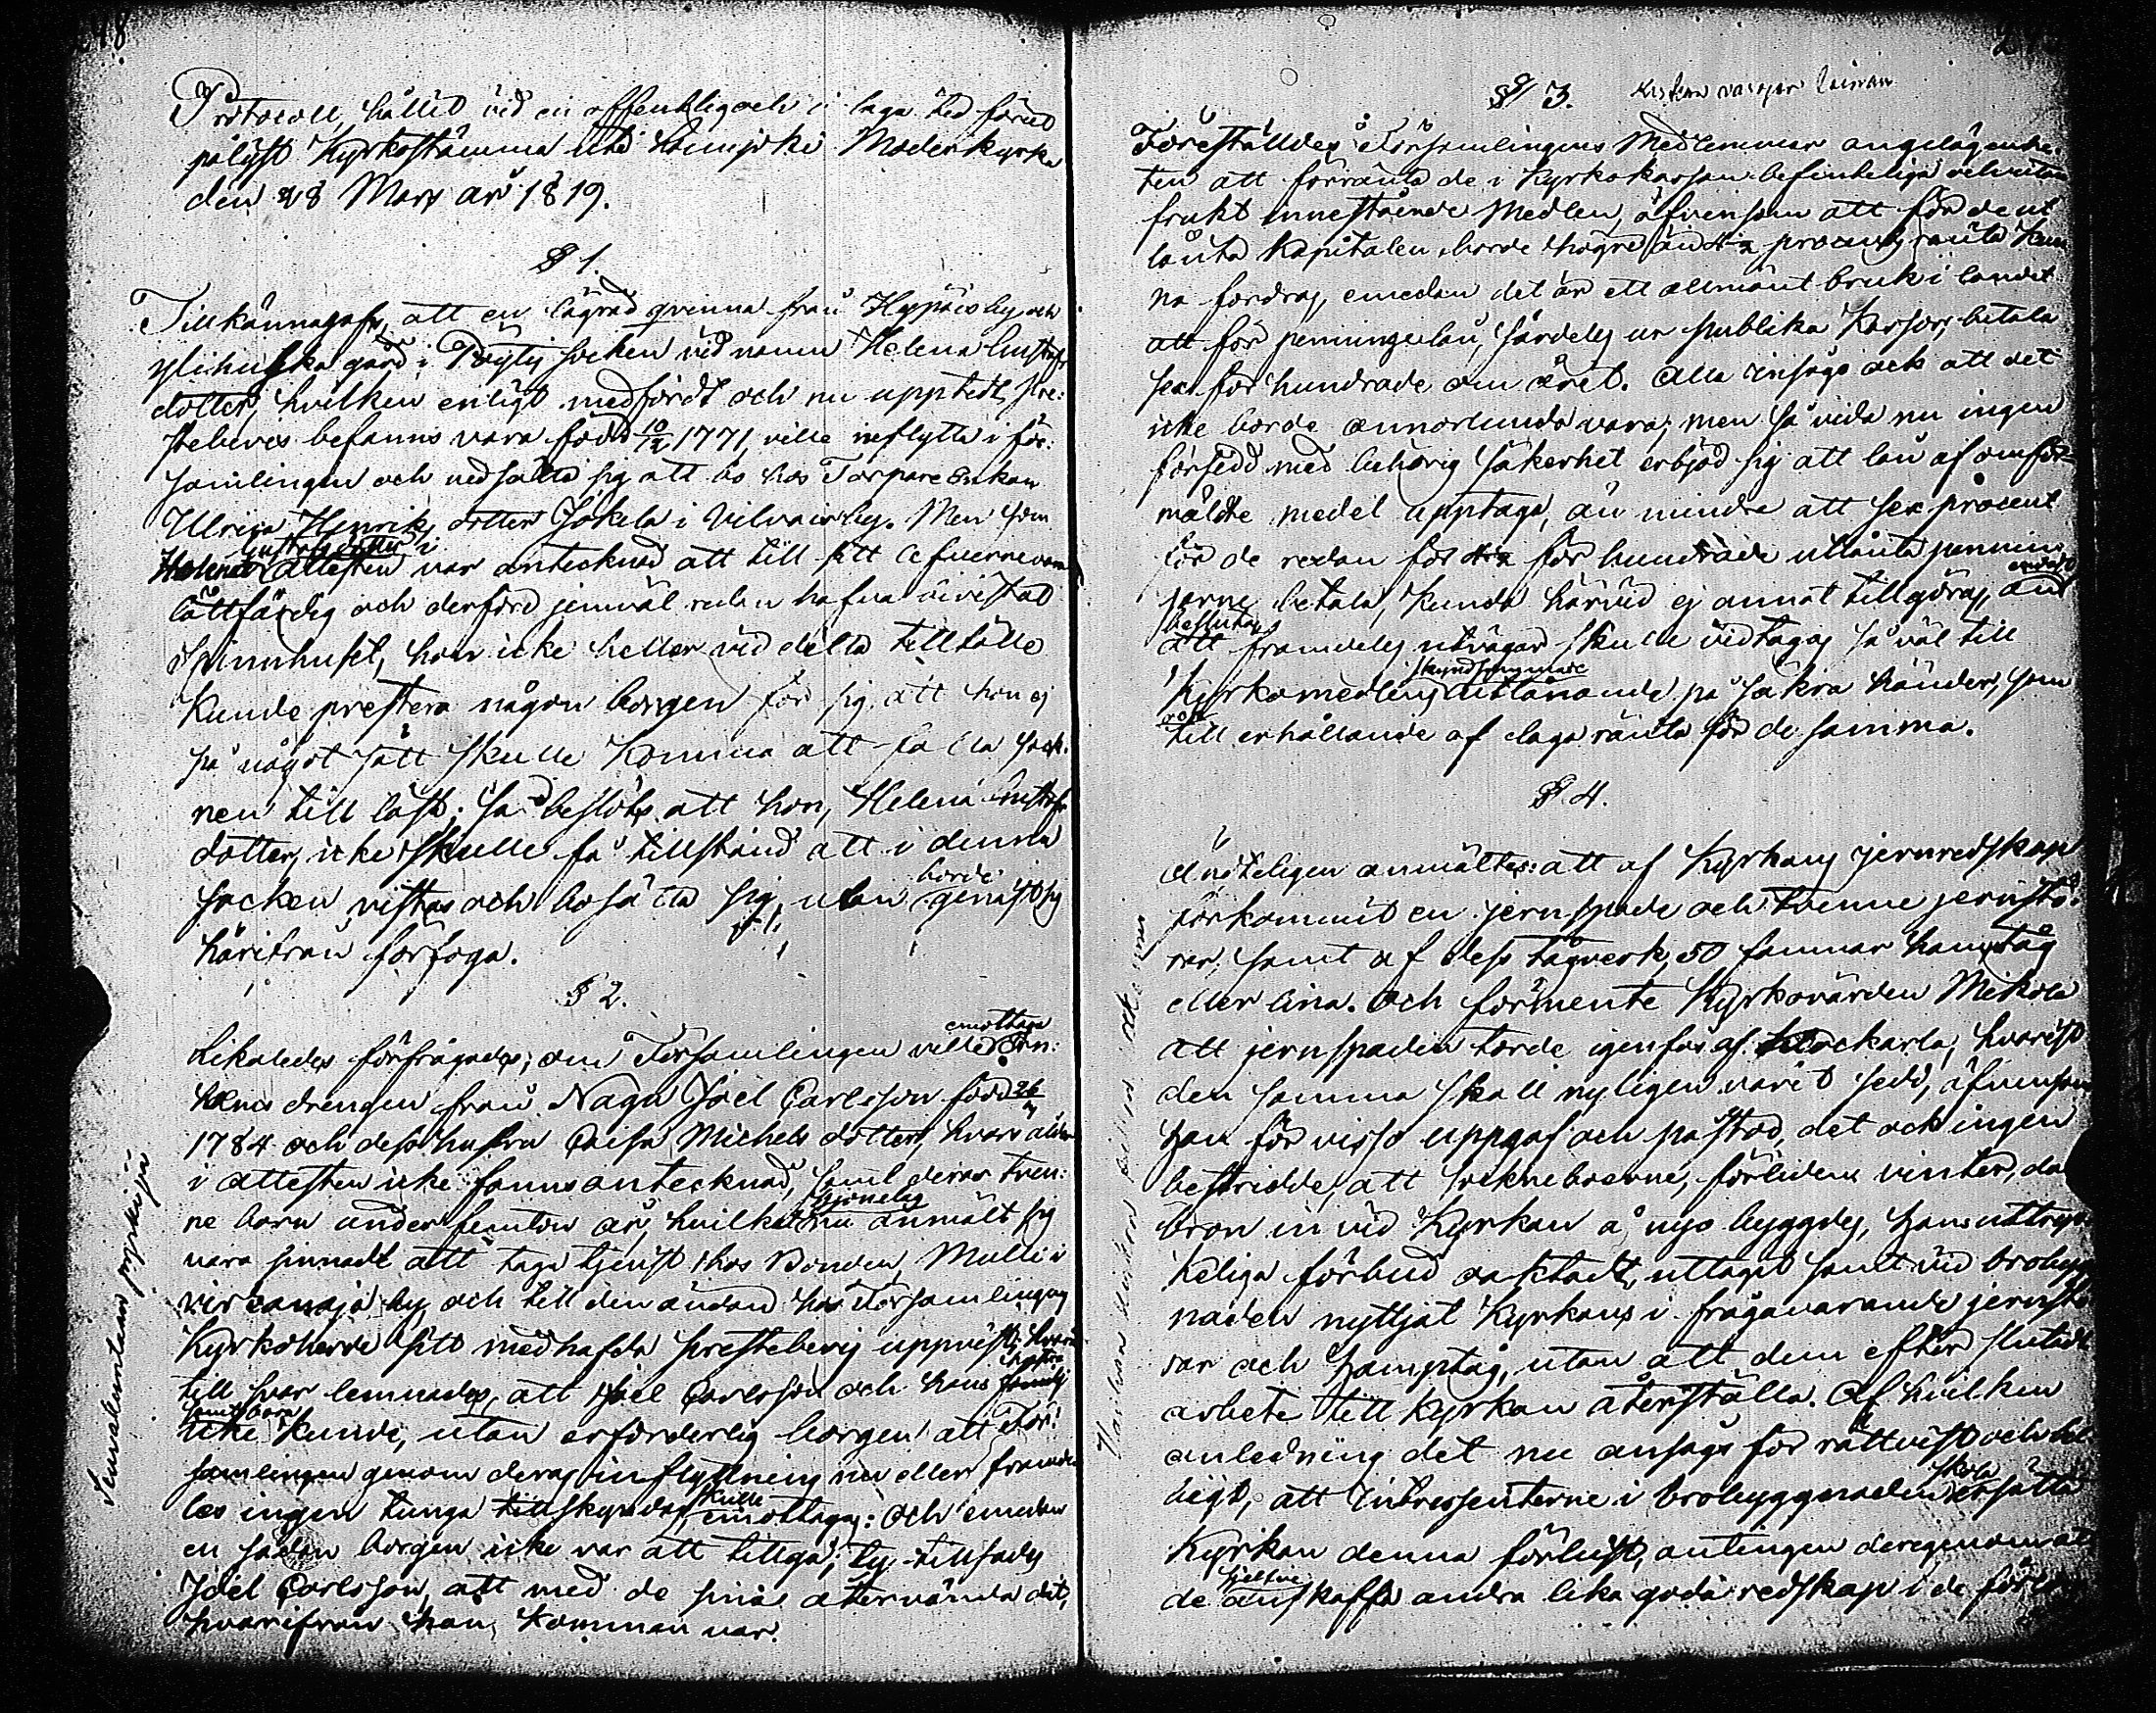 Protocoll, hållit vid en offentlig och i laga tid förut
pålyst Kyrkostämma uti Loimijoki Moderkyrka
den 28 Mars år 1819.
§ 1.
Tillkännagafs, att en lägrad qvinna från Hypöis by och
Ylihuska gård i Pöytis socken vid namn Helena Gustafs
dotter, hvilken enligt medfördt och nu upptedt Pre-
stebevis befanns vara född 10/12 1771, ville inflytta i för-
samlingen och nedsätta sig att bo hos Torpare Enkan
Ulrica Henriks dotter Jokela i Vilvais by. Men som
Gustafsdotter i
Helenas attesten var antecknad att till sitt lefverne vara
lättfärdig och derföre jemväl redan hafva vistats
Spinnhuset, hon icke heller vid detta tillfälle
kunde prestera någon borgen för sig, att hon ej
på något sätt skulle komma att falla Sock-
nen till last; så beslöts att hon, Helena Gustafs
dotter, icke skulle få tillstånd att i denna
borde
socken vistas och bosätta sig, utan genast sig
härifrån förfoga.
§ 2.
emottaga
Likaledes förfrågades, om Församlingen ville
drengen från Nagu Joel Carlsson född 26/
1784 och dess hustru Caisa Michels dotter, hvars ålder
i attesten icke fanns antecknad, samt deras tven-
ne barn under femton år, hvilka nu anmält sig
vara sinnade att taga tjenst hos Bonden Matts i
by, och till den ändan hos Församlingens
Kyrkoherde sitt medhafda prestebevis uppvist; hvar-
hustru
till svar lemnades, att Joel Carlsson och hans familj
samt barn
icke kunde, utan erforderlig borgen att För-
samlingen genom deras inflyttning nu eller framde-
skulle
les ingen tunga tillskyndas, emottagas: och emedan
en sådan borgen icke var att tillgå; ty tillsades
Joel Carlsson, att med de sina återvända dit,
hvarifrån han kommen var.
§ 3.
Föreställdes Församlingens Medlemmar angelägenhe-
ten att förränta de i Kyrkokassan befinteliga och utan
frukt innestående Medlen, äfvensom att för de ut
lånta Kapitalen borde högre än fyra procents ränta kun
na fordras, emedan det är ett allmänt bruk i landet
att för penningelån, särdeles ur publika Kassor, betala
sex för hundrade om året. Alla insågo ock att det
icke borde annorlunda vara; men så vida nu ingen
försedd med behörig säkerhet erbjöd sig att lån af omför-
mäldte medel upptaga, än mindre att sex procent
för de redan för fyra för hundrade utlånta pennin-
endast
garne betala, kunde härvid ej annat tillgöras, än
beslutas
att framdeles utvägar skulle vidtagas så väl till
skyndsammare
Kyrkomedlens utlånande på säkra händer, som
ock
till erhållande af laga ränta för de samma.
§ 4.
Ändteligen anmältes: att af Kyrkans jernredskap
förkommit en jernspade och tvenne jernstö-
rar, samt af dess tågverk, 50 famnar hamptåg
eller lina. Och förmente Kyrkovärden Mikola
att jernspaden torde igenfås af Klockarla, hvarest
den samma skall nyligen varit sedd, äfvensom
han för visso uppgaf och påstod, det ock ingen
bestridde, att sockneboerne, förliden vinter, då
bron in vid Kyrkan å nyo byggdes, hans uttryc-
keliga förbud oaktadt, uttagit samt vid brobygg
naden nyttjat Kyrkans i frågavarande jernstö
rar och hamptåg, utan att dem efter slutadt
arbete till Kyrkan återställa. Af hvilken
anledning det nu ansågs för rättvist och bil
skola
ligt, att Intressenterne i brobyggnaden ersätta
Kyrkan denna förlust, antingen derigenom att
sjelfve
de anskaffa andra lika goda redskap i de förlo